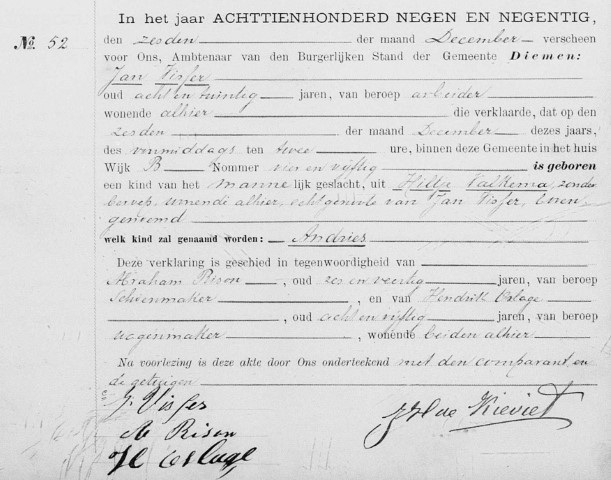 In het jaar ACHTTIENHONDERD NEGEN EN NEGENTIG,
No. 52
den zesden der maand December verscheen
voor Ons, Ambtenaar van den Burgerlijken Stand der Gemeente Diemen:
Jan Visser
oud acht en twintig jaren, van beroep arbeider
wonende alhier die verklaarde, dat op den
zesden der maand December dezes jaars,
des voormiddags ten twee ure, binnen deze Gemeente in het huis
Wijk B Nommer vier en vijftig is geboren
een kind van het manne lijk geslacht, uit Hiltje Valkema, zonder
beroep, wonende alhier, echtgenoote van Jan Visser, boven
genoemd
welk kind zal genaamd worden: Andries
Deze verklaring is geschied in tegenwoordigheid van
Abraham Rison, oud zes en veertig jaren, van beroep
Schoenmaker, en van Hendrik Eslage
, oud acht en vijftig jaren, van beroep
wagenmaker, wonende beiden alhier
Na voorlezing is deze akte door Ons onderteekend met den comparant en
de getuigen
J. Visser
A Rison
H Eslage
de Kieviet